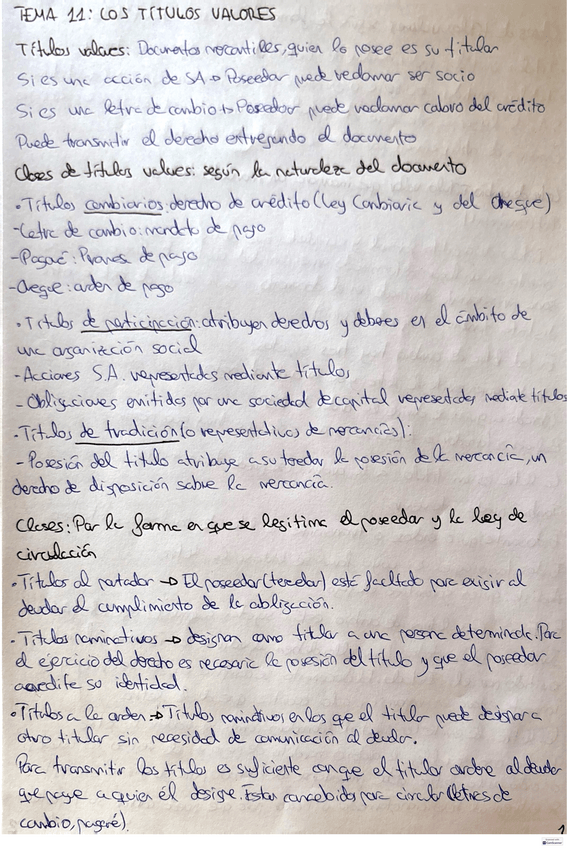 TEMA 11: LOS TÍTULOS VALORES
Títulos valores: Documentos mercantiles, quien lo posee es su titular
Si es una acción de SA → Poseedor puede reclamar ser socio
Si es una letra de cambio → Poseedor puede reclamar cobro del crédito
Puede transmitir el derecho entregando el documento
Clases de títulos valores: según la naturaleza del documento
• Títulos cambiarios: derecho de crédito (Ley Cambiaria y del Cheque)
- Letra de cambio: mandato de pago
- Pagaré: Promesa de pago
- Cheque: orden de pago
• Títulos de participación: atribuyen derechos y deberes en el ámbito de
una organización social
- Acciones S.A. representadas mediante títulos
- Obligaciones emitidas por una sociedad de capital representadas mediate títulos
• Títulos de tradición (o representativos de mercancías):
- Posesión del titulo atribuye a su tenedor la posesión de la mercancía, un
derecho de disposición sobre la mercancía.
Clases: Por la forma en que se legitima el poseedor y la ley de
circulación
• Títulos al portador → El poseedor (tenedor) está facultado para exigir al
deudor el cumplimiento de la obligación.
• Títulos nominativos → designan como titular a una persona determinada. Para
el ejercicio del derecho es necesaria la posesión del título y que el poseedor
acredite su identidad.
• Títulos a la orden → Títulos nominativos en los que el titular puede designar a
otro titular sin necesidad de comunicación al deudor.
Para transmitir los títulos es suficiente con que el titular ordene al deudor
que pague a quien él designe. Están concebidos para circular (letras de
cambio, pagaré).
1